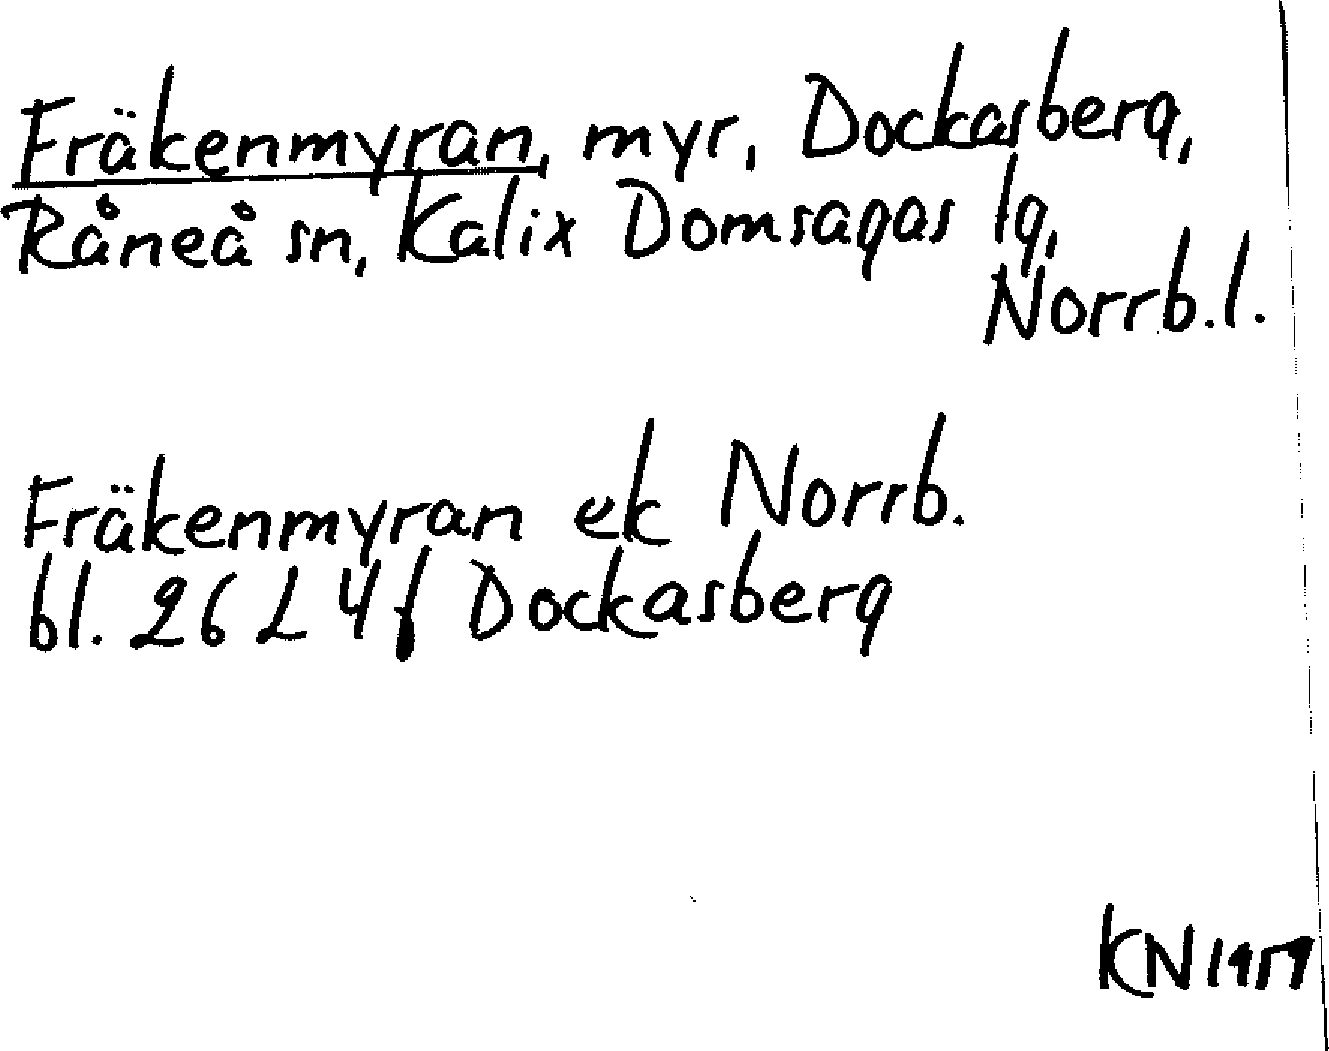 Fräkenmyran, myr, Dockasberg,
Råneå sn, Kalix Domsagas lg,
Norrb.l.
Fräkenmyran ek Norrb.
bl. 26 L 4 f Dockasberg
KN 1959